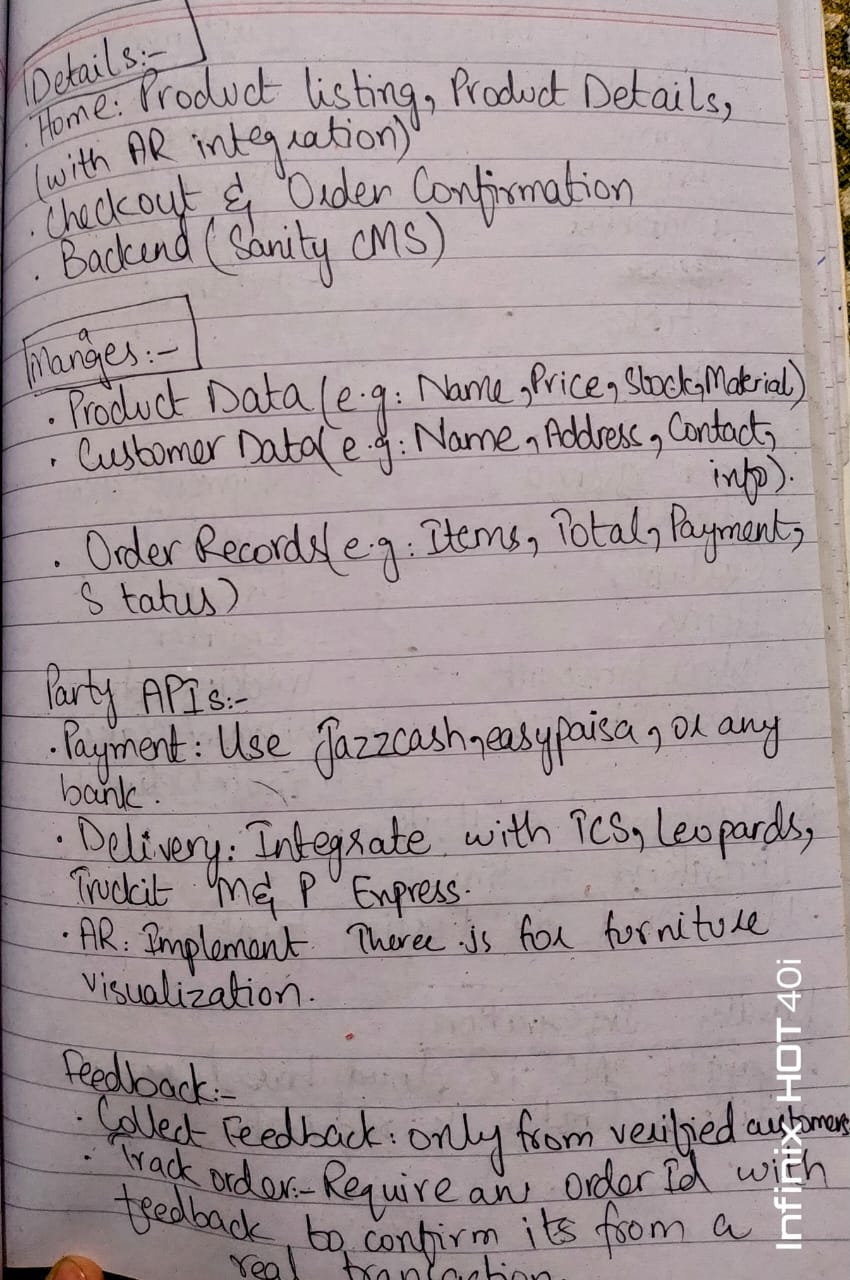 Details:-
. Home: Product listing, Product Details,
(with AR integration)
. Checkout & Order Confirmation
. Backend (Sanity CMS)
Manages:-
. Product Data (e.g: Name, Price, Stock, Material)
. Customer Data (e.g: Name, Address, Contact,
info).
. Order Records (e.g: Items, Total, Payment,
Status)
Party APIs:-
. Payment: Use Jazzcash, easypaisa, or any
bank.
. Delivery: Integrate with TCS, Leopards,
Truckit M& P Express.
. AR: Implement Theree .js for furniture
visualization.
Feedback:-
. Collect Feedback: only from verified customers
. Track order:- Require an order Id with
feedback to confirm its from a
real transaction.
Infinix HOT 40i